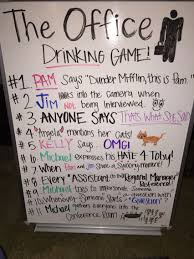 The Office
DRINKING GAME!
#1 PAM Says "Dunder Mifflin, this is Pam."
#2 JIM looks into the camera when
NOT being interviewed.
#3 ANYONE SAYS That's what She Said
#4 Angela mentions her Cats!
#5 KELLY Says OMG!
#6 Michael expresses his HATE 4 Toby!
#7 When Pam and Jim Share a
#8 Every "Assistant to the Regional Manager"
Reference!
#9 Michael tries to impersonate Someone
#10 Whenever Someone Starts a
#11 Michael gathers everyone into the
Conference Room